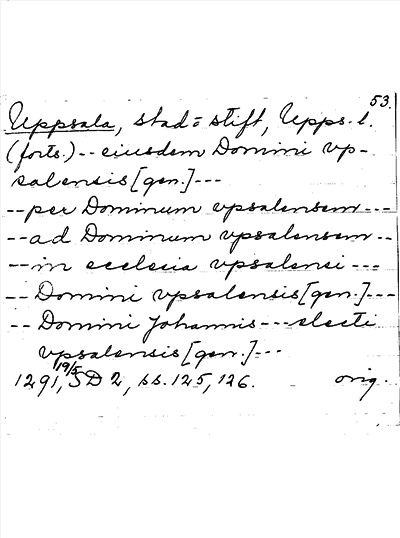 53.
Uppsala, stad o stift, Upps. l.
(forts.) -- eiusdem Domini vp-
salensis [gen.] ---
-- per Dominum vpsalensem ---
-- ad Dominum vpsalensem --
-- in ecclesia vpsalensi ---
-- Domini vpsalensis [gen.] ---
-- Domini Johannis --- electi
vpsalensis [gen.] ---
1291, 19/5 SD 2, ss. 125, 126. orig.